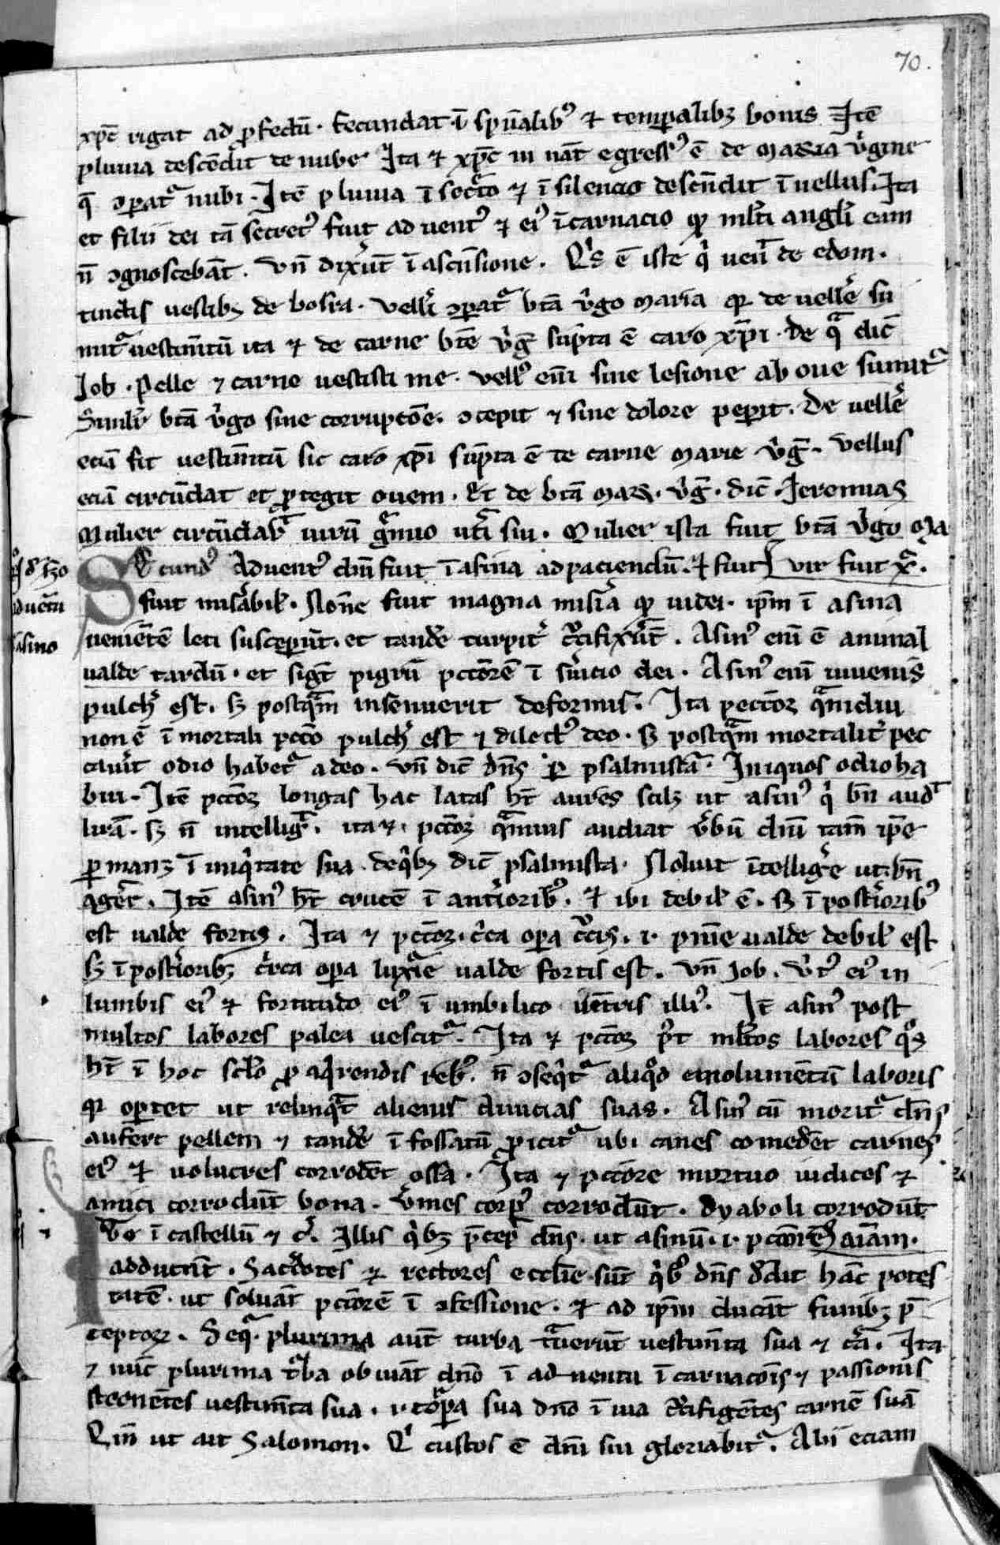 70.
xp̄c rigat ad ꝓfectū. fecundat ī sp̄ualibꝰ ⁊ temꝑalibꝫ bonis Itē
pluvia descēdit de nube Ita ⁊ xp̄c in nat̄ egressꝰ ē de Maria v̓gine
q̄ ꝯparatᷣ nubi. Itē pluvia ī secͤto ⁊ ī silencio descēdit ī vellus. Ita
et filiꝰ dei tā secretꝰ fuit adventꝰ ⁊ eiꝰ īcarnacio ꝙ ml̄ti angl̓i eum
n̄ ꝯgnoscebāt. Vn̄ dixūt ī ascēsione. Qͥs ē iste qͥ venͥt de edom.
tinctis vestibꝫ de bosra. Velleri ꝯparatᷣ btā v̓go maria ꝙ de vell̓e su
mitᷣ vestimtū ita ⁊ de carne btē v̓gͥ sūpta ē caro xp̄i. de qͣ dic̄
Job. Pelle ⁊ carne vestisti me. Vellꝰ eni sine lesione ab oue sumitᷣ
Simil̓r btā v̓go sine corrupcōe. ꝯcepit ⁊ sine dolore peperit. De vell̓e
eciā fit vestimtū sic caro xp̄i sūpta ē de carne Marie v̓gͥ. Vellus
eciā circūdat et ꝓtegit ovem. Et de btā Maria v̓gͥ. dic̄. Jeremias
Mulier circūdabͥt virū gͣmio vtͥ sui. Mulier ista fuit btā v̓go Ma
Secundꝰ Adventꝰ dn̄i fuit ī asina ad paciendū. ⁊ fuit vir fuit xͣ.
fuit misͣbil̓. Nōne fuit magna misͥa ꝙ iudei. ip̄m ī asina
venientē leti susceperūt. et tandē turpitͥ cͥcifixerūt. Asinꝰ eni ē animal
valde tardū. et sigͣt pigrū pctōrē ī sͥvicio dei. Asinꝰ eni iuvenis
pulch̓ est. sꝫ postqͣm insenuerit deformis. Ita pectōꝝ qͣmdiu
non ē ī mortali pctō pulch̓ est ⁊ dilectꝰ deo. sꝫ postqͣm mortalitͥ pec
caūit odio habetᷣ a deo. Vn̄ dic̄ dn̄s ꝑ psalmistā. Iniquos odio ha
bui. Itē pctōꝝ longas hac latas hꝫ aures scilꝫ ut asinꝰ qͥ bn̄ audͥt
lirā. sꝫ n̄ intelligͥt. ita ⁊ pctōꝝ qͣmvis audiat v̓bū dn̄i tam̄ ip̄e
ꝑmanꝫ ī iniqͥtate sua. de qͥbꝫ dic̄ psalmista. Noluit ītellig̓e ut bn̄
ageret. Itē asinꝰ hꝫ crucē ī antͥioribꝰ. ⁊ ibi debil̓ ē. sꝫ ī postͥioribꝰ
est valde fortis. Ita ⁊ pctōꝝ. cͥca opera cͥcis. i. pn̄ie valde debil̓ est
sꝫ ī postͥioribꝫ cͥrca opera luxͥie valde fortis est. Vn̄ Job. v̓tꝰ eiꝰ in
lumbis eiꝰ ⁊ fortitudo eiꝰ ī umbilico ventris illiꝰ. Itē asinꝰ post
multos labores palea vescitᷣ. Ita ⁊ pctōꝝ pͥt ml̄tos labores qͦs
hꝫ ī hoc sclͦo ꝓ aqͥrendis rebꝰ. n̄ ꝯseqͥtᷣ aliqͦd emolumētū laboris
ꝙ oportet ut relinqͣt alienis divicias suas. Asinꝰ cū moritᷣ dn̄s
aufert pellem ⁊ tandē ī fossatū ꝓicitᷣ ubi canes comedēt carnes
eiꝰ ⁊ volucres corrodēt ossa. Ita ⁊ pctōre mortuo iudices ⁊
amici corrodūt bona. v̓mes corpꝰ corrodūt. dyaboli corrodūt
Ite ī castellū ⁊ cͣ. Illis qͥbꝫ p̄cep̄ dn̄s. ut asinū. i. pctōrē aīam.
adducāt. Sacͤdotes ⁊ rectores eccl̄ie sūt qͥbꝰ dn̄s dedit hāc potes
tatē. ut solvāt pctōrē ī ꝯfessione. ⁊ ad ip̄m ducāt funibꝫ p̄
ceptoꝝ. Seqͥ. plurima aūt turba stͣverūt vestimta sua ⁊ cͣ. Ita
⁊ nūc plurima tͥba obviāt dn̄o ī adventu īcarnacōis ⁊ passionis
sternentes vestimta sua. i. corpora sua dn̄o ī via cͥcifigētes carnē suā
Qin̄ ut ait Salomon. Qͥ custos ē dn̄i sui gloriabitᷣ. Abi eciam
advētū
asino